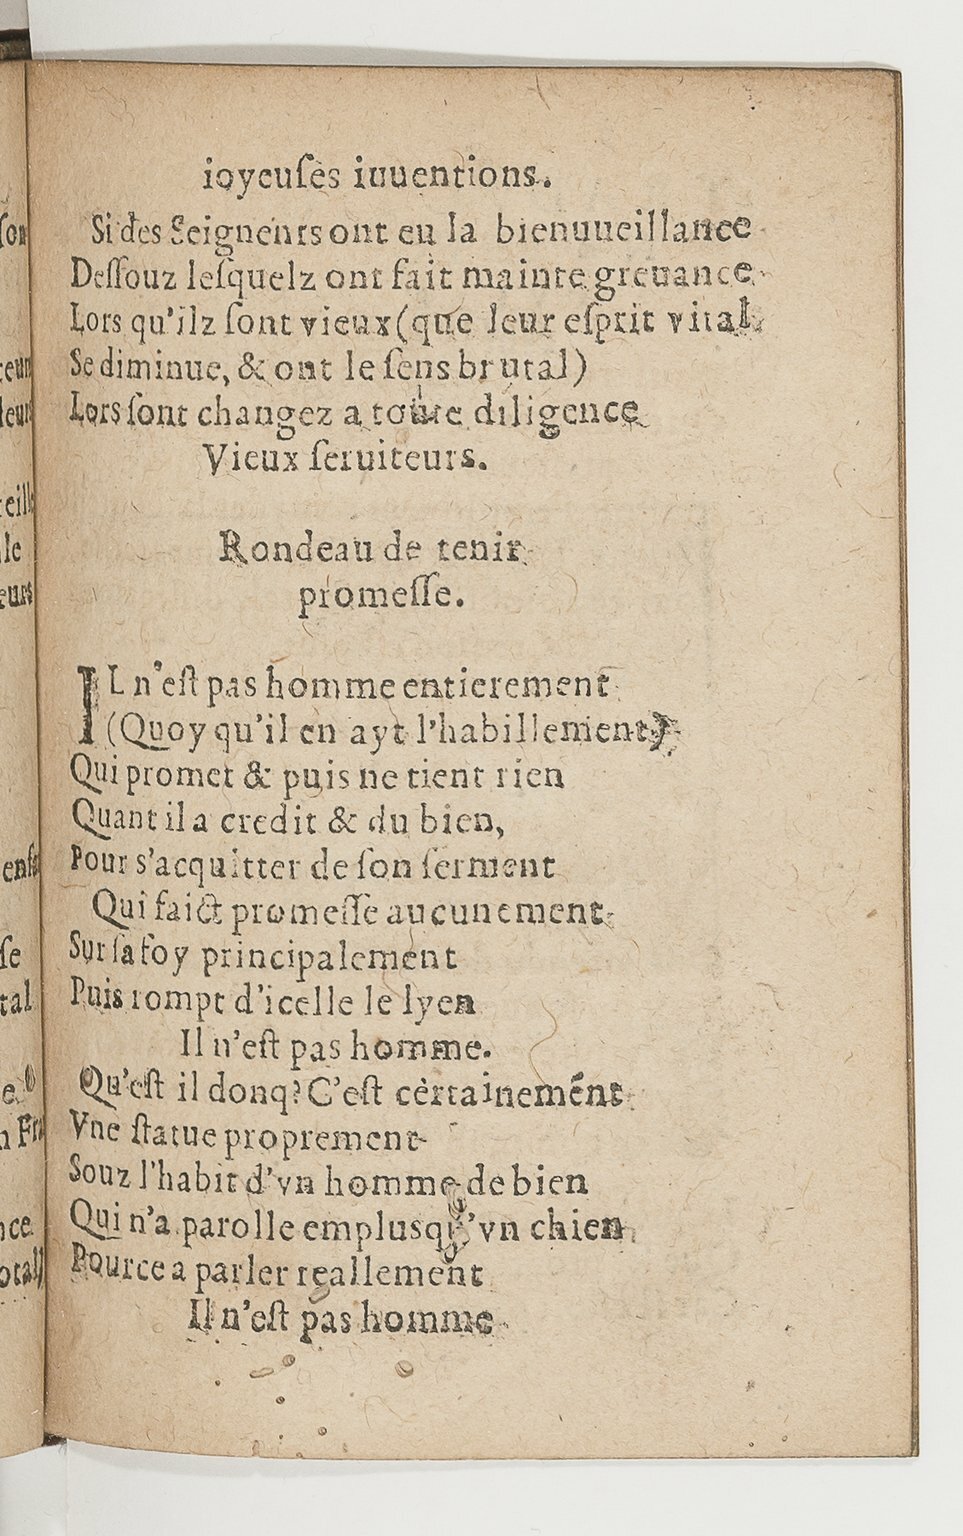 ioyeuſes inuentions.
Si des Seigneurs ont eu la bienuueillance
Deſſouz leſquelz ont fait mainte greuance
Lors qu'ilz ſont vieux (que leur eſprit vital
Se diminue, & ont le ſens brutal)
Lors ſont changez a toute diligence
Vieux ſeruiteurs.
Rondeau de tenir
promeſſe.
IL n'eſt pas homme entierement
(Quoy qu'il en ayt l'habillement)
Qui promet & puis ne tient rien
Quant il a credit & du bien,
Pour s'acquitter de ſon ſerment
Qui faict promeſſe aucunement
Sur ſa foy principalement
Puis rompt d'icelle le lyen
Il n'eſt pas homme.
Qu'eſt il donq? C'eſt certainement
Vne ſtatue proprement
Souz l'habit d'vn homme de bien
Qui n'a parolle emplusqu'vn chien
Pource a parler reallement
Il n'eſt pas homme